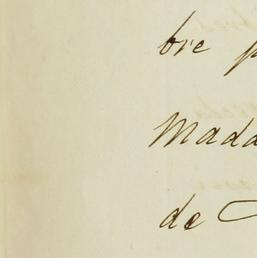 bre p
Mada
de